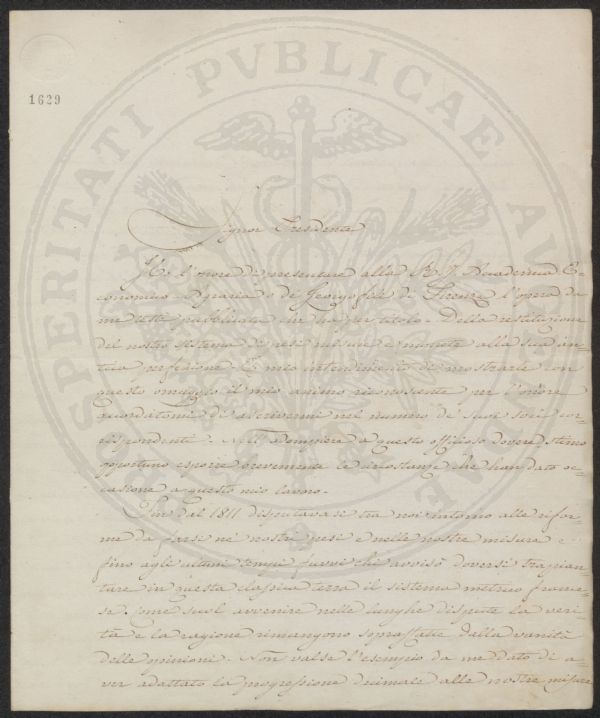 PROSPERITATI PVBLICAE AVGENDAE
1629
Signor Presidente
Ho l'onore di presentare alla R. I. Accademia E-
conomico-Agraria o de' Georgofili di Firenze l'opera da
me testè pubblicata che ha per titolo - Della restituzione
del nostro sistema di pesi misure e monete alla sua an-
tica perfezione. È mio intendimento di mostrarle con
questo omaggio il mio animo riconoscente per l'onore
di ascrivermi nel numero de' suoi soci cor-
rispondenti. Nell'adempiere a questo officioso dovere stimo
opportuno esporre brevemente le circostanze che han dato oc-
casione a questo mio lavoro.
Fino del 1811 disputavasi tra noi intorno alle rifor-
me da farsi ne' nostri pesi e nelle nostre misure e
fino agli ultimi tempi furvi chi avvisò doversi trapian-
tare in questa classica terra il sistema metrico france-
se. Come suol avvenire nelle lunghe dispute la veri-
tà e la ragione rimangono sopraffatte dalla vanità
delle opinioni. Non valse l'esempio da me dato di a-
ver adattato la progressione decimale alle nostre misure